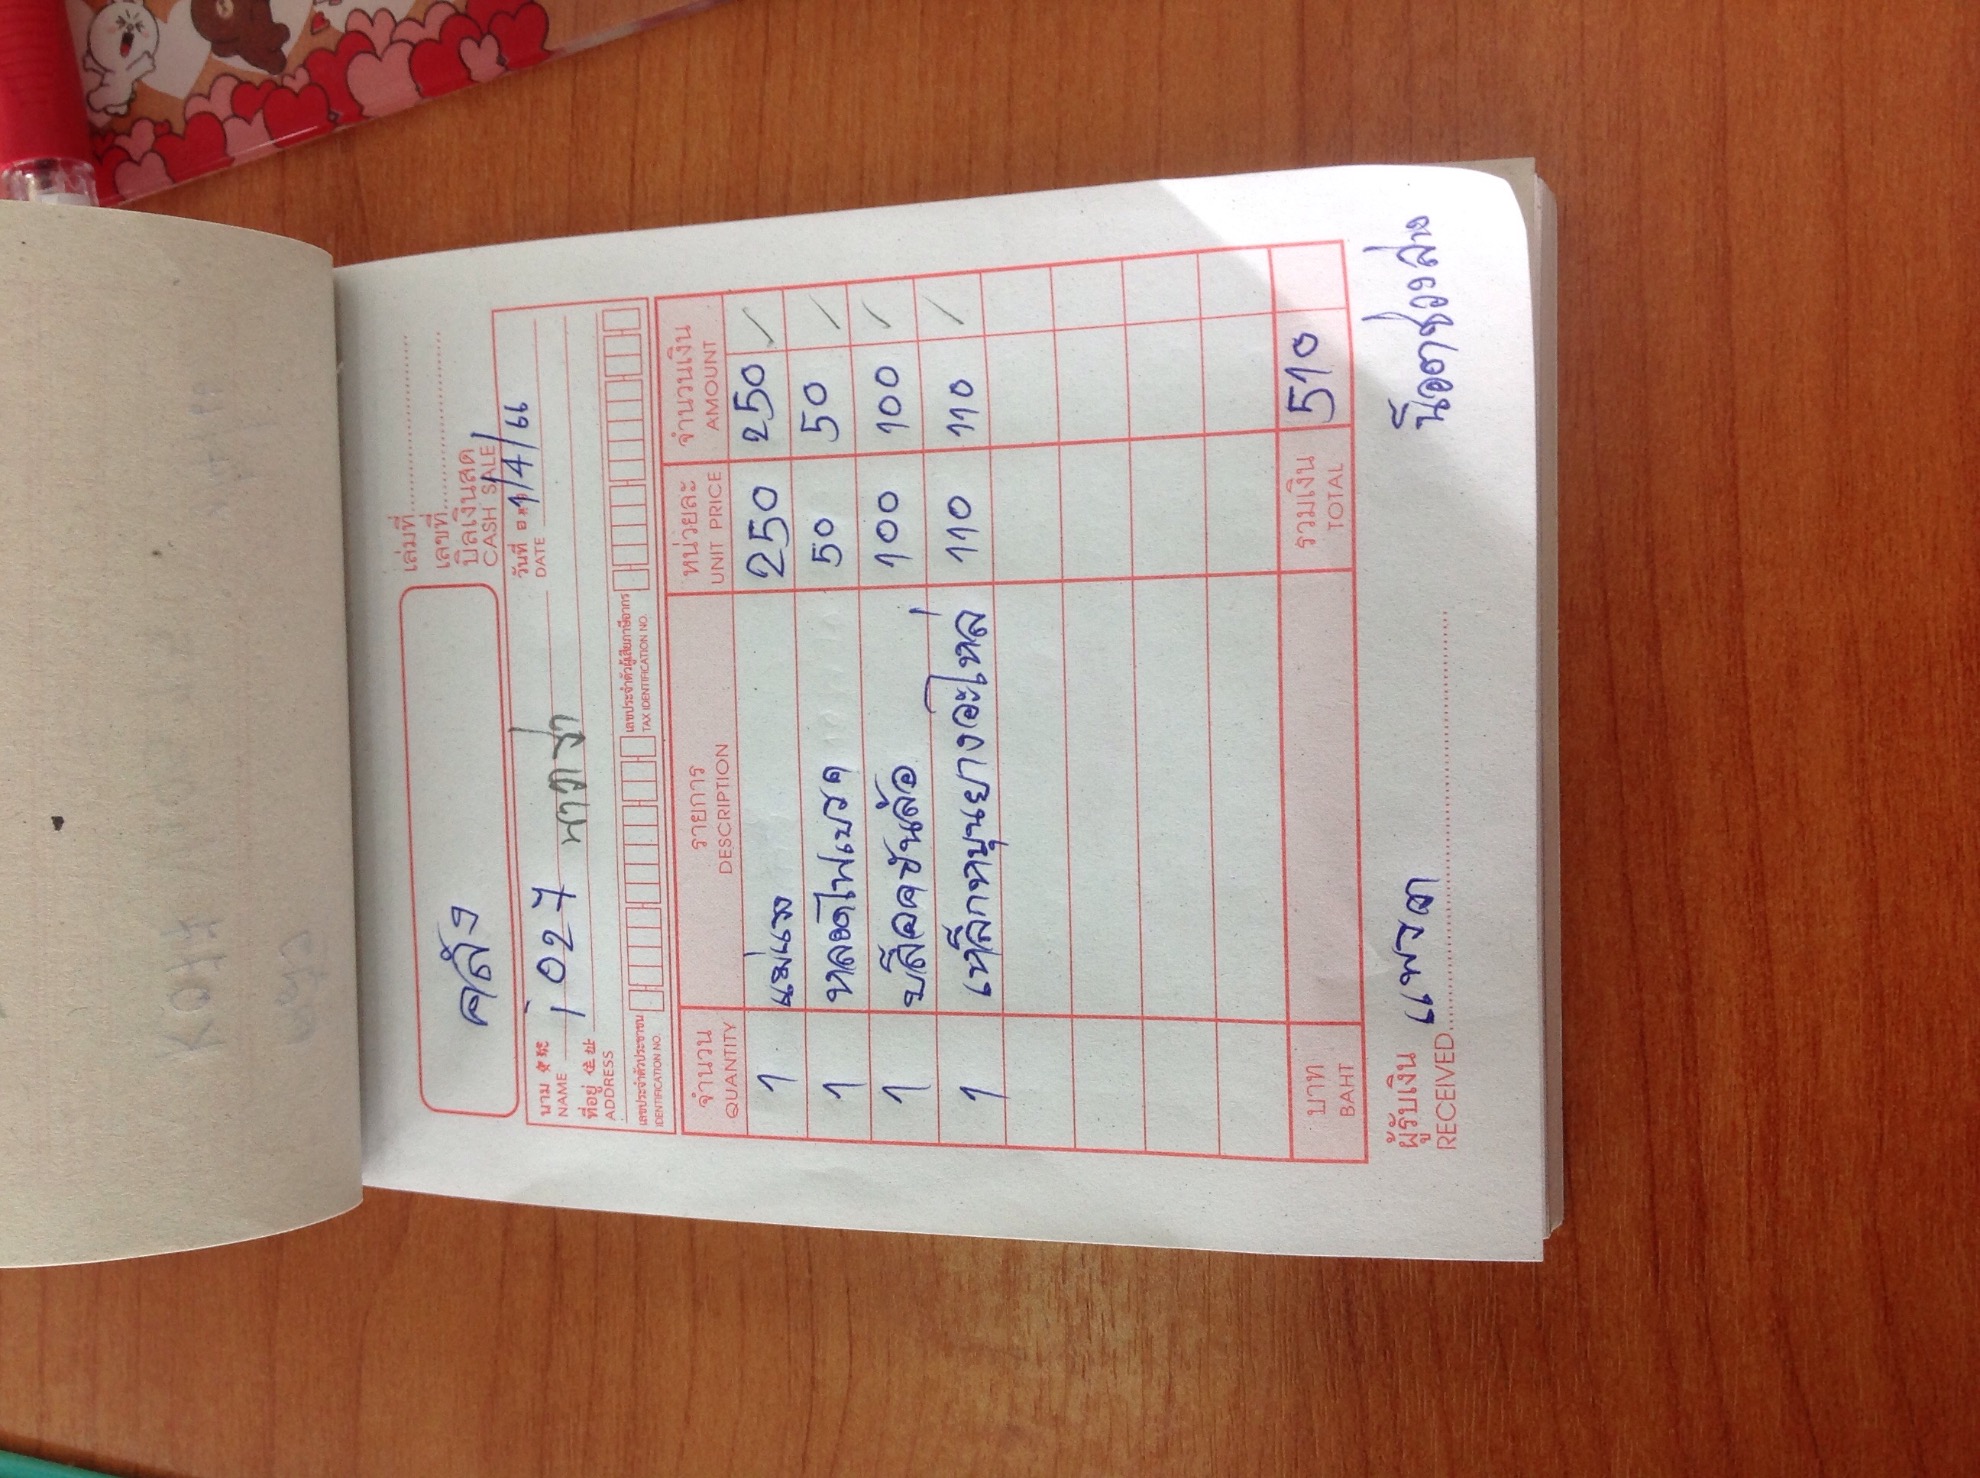 เล่มที่
เลขที่
คลัง
บิลเงินสด
CASH SALE
วันที่ 1/4/66
DATE
นาม 1027
NAME
ที่อยู่ 住址
ADDRESS
เลขประจำตัวประชาชน
IDENTIFICATION NO.
เลขประจำตัวผู้เสียภาษีอากร
TAX IDENTIFICATION NO.
จำนวน รายการ หน่วยละ จำนวนเงิน
QUANTITY DESCRIPTION UNIT PRICE AMOUNT
1 แม่แรง 250 250
1 หลอดไฟเบรค 50 50
1 บล็อคขันล้อ 100 100
1 เหล็กหมุนยางอะไหล่ 110 110
บาท รวมเงิน 510
BAHT TOTAL
ผู้รับเงิน แพรวา
RECEIVED
น๊อตช่วงล่าง